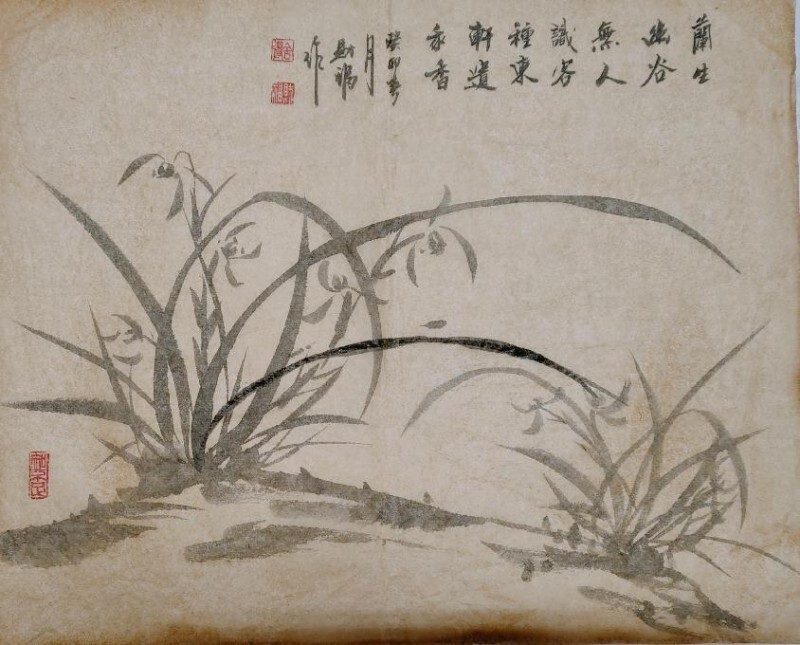 蘭生
幽谷
無人
識客
種東
軒遺
我香
癸卯春
月
作